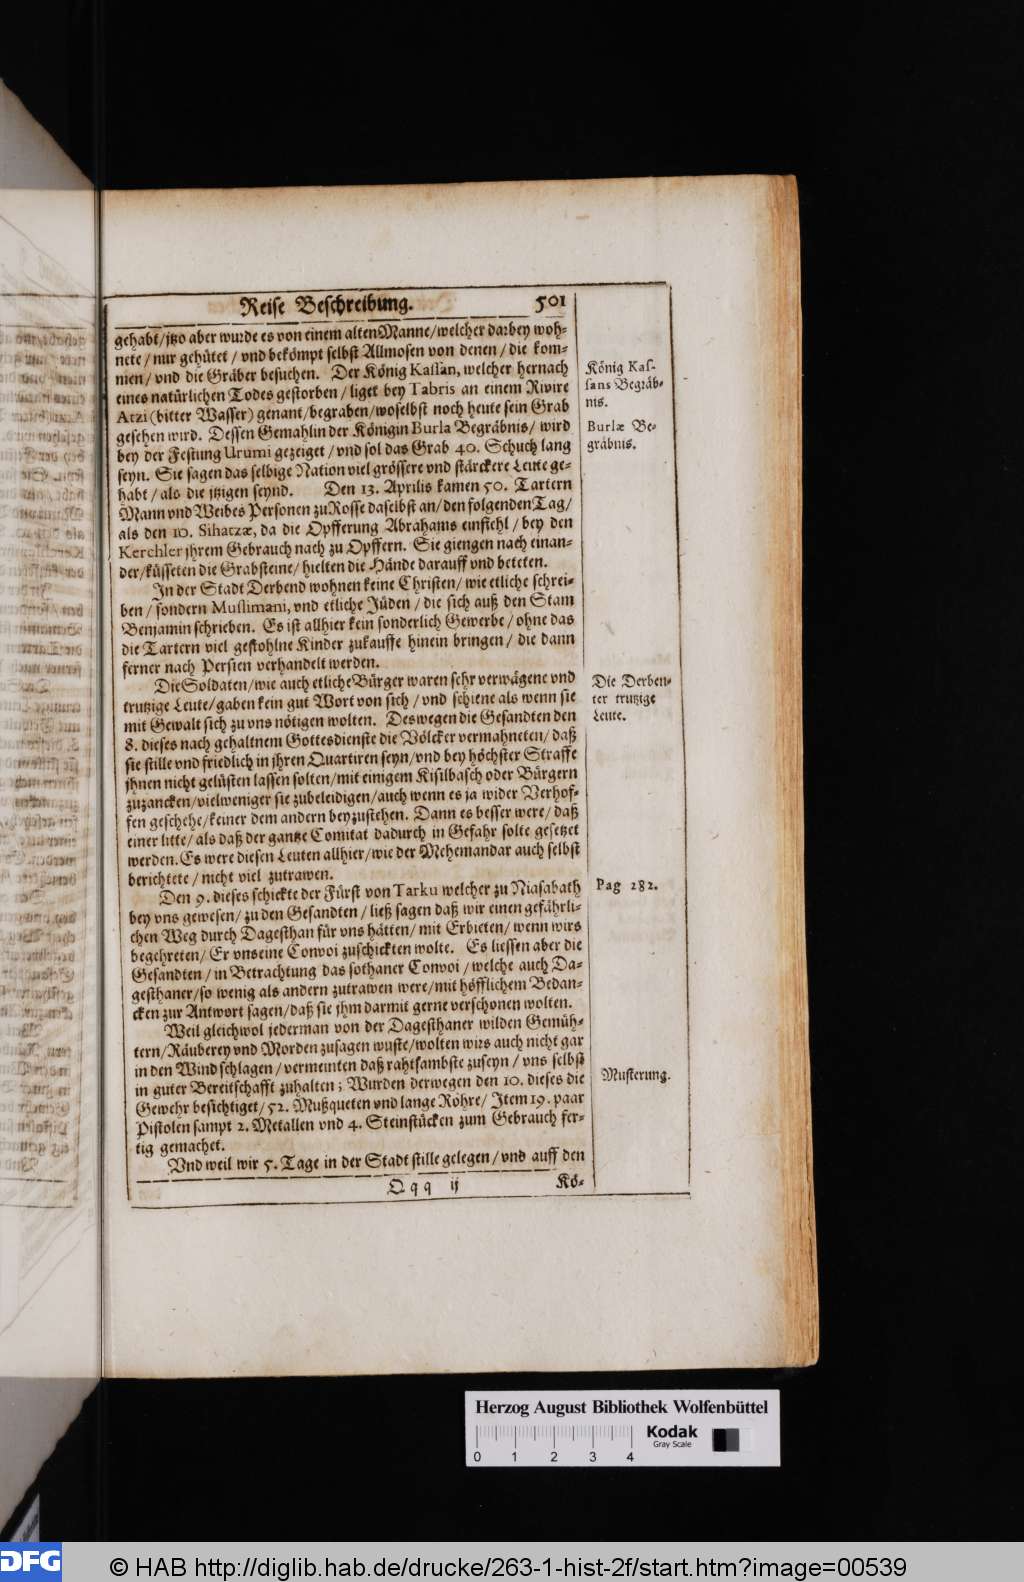 Reise Beschreibung. 501
gehabt/jtzo aber wurde es von einem alten Manne/welcher darbey woh-
nete/nur gehütet/vnd bekömpt selbst Allmosen von denen/die kom-
men/vnd die Gräber besuchen. Der König Kassan, welcher hernach
eines natürlichen Todes gestorben/liget bey Tabris an einem Rivire
Atzi (bitter Wasser) genant/begraben/woselbst noch heute sein Grab
gesehen wird. Dessen Gemahlin der Königin Burla Begräbnis/wird
bey der Festung Urumi gezeiget/vnd sol das Grab 40. Schuch lang
seyn. Sie sagen das selbige Nation viel grössere vnd stärckere Leute ge-
habt/als die jtzigen seynd. Den 13. Aprilis kamen 50. Tartern
Mann vnd Weibes Personen zu Rosse daselbst an/den folgenden Tag/
als den 10. Sihatzæ, da die Opfferung Abrahams einfiehl/bey den
Kerchler jhrem Gebrauch nach zu Opffern. Sie giengen nach einan-
der/küsseten die Grabsteine/hielten die Hände darauff vnd beteten.
In der Stadt Derbend wohnen keine Christen/wie etliche schrei-
ben/sondern Muslimani, vnd etliche Jüden/die sich auß den Stam
Benjamin schrieben. Es ist allhier kein sonderlich Gewerbe/ohne das
die Tartern viel gestohlne Kinder zukauffe hinein bringen/die dann
ferner nach Persien verhandelt werden.
Die Soldaten/wie auch etliche Bürger waren sehr verwägene vnd
trutzige Leute/gaben kein gut Wort von sich/vnd schiene als wenn sie
mit Gewalt sich zu vns nötigen wolten. Deswegen die Gesandten den
8. dieses nach gehaltnem Gottesdienste die Völcker vermahneten/daß
sie stille vnd friedlich in jhren Quartiren seyn/vnd bey höchster Straffe
jhnen nicht gelüsten lassen solten/mit einigem Kisilbasch oder Bürgern
zuzancken/vielweniger sie zubeleidigen/auch wenn es ja wider Verhof-
fen geschehe/keiner dem andern beyzustehen. Dann es besser were/daß
einer litte/als daß der gantze Comitat dadurch in Gefahr solte gesetzet
werden. Es were diesen Leuten allhier/wie der Mehemandar auch selbst
berichtete/nicht viel zutrawen.
Den 9. dieses schickte der Fürst von Tarku welcher zu Niasabath
bey vns gewesen/zu den Gesandten/ließ sagen daß wir einen gefährli-
chen Weg durch Dagesthan für vns hätten/mit Erbieten/wenn wirs
begehreten/Er vns eine Convoi zuschickten wolte. Es liessen aber die
Gesandten/in Betrachtung das sothaner Convoi/welche auch Da-
gesthaner/so wenig als andern zutrawen were/mit höfflichem Bedan-
cken zur Antwort sagen/daß sie jhm darmit gerne verschonen wolten.
Weil gleichwol jederman von der Dagesthaner wilden Gemüh-
tern/Räuberey vnd Morden zusagen wuste/wolten wirs auch nicht gar
in den Wind schlagen/vermeinten daß rahtsambste zuseyn/vns selbst
in guter Bereitschafft zuhalten; Wurden derwegen den 10. dieses die
Gewehr besichtiget/52. Mußqueten vnd lange Röhre/Item 19. paar
Pistolen sampt 2. Metallen vnd 4. Steinstücken zum Gebrauch fer-
tig gemachet.
Vnd weil wir 5. Tage in der Stadt stille gelegen/vnd auff den
Qqq ij Kö-
König Kas-
sans Begräb-
nis.
Burlæ Be-
gräbnis.
Die Derben-
ter trutzige
Leute.
Pag 282.
Musterung.
Herzog August Bibliothek Wolfenbüttel
Kodak
Gray Scale
0 1 2 3 4
DFG
© HAB http://diglib.hab.de/drucke/263-1-hist-2f/start.htm?image=00539